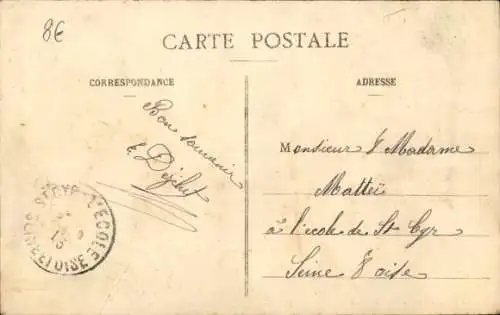 8€
CARTE POSTALE
CORRESPONDANCE
ADRESSE
Bon souvenir
Monsieur & Madame
Matteï
à l'école de St Cyr
Seine & oise
ST CYR L'ECOLE
SEINE-ET-OISE
13